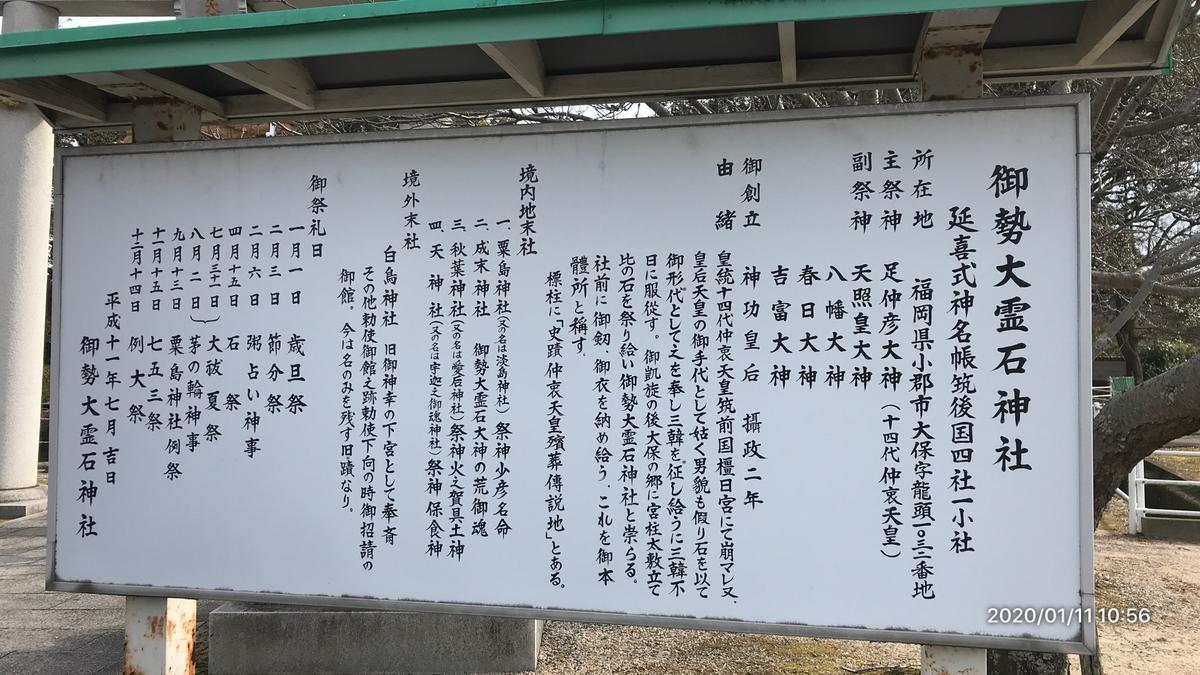 御勢大霊石神社
延喜式神名帳筑後国四社一小社
所在地 福岡県小郡市大保字龍頭一〇三二番地
主祭神 足仲彦大神(十四代仲哀天皇)
副祭神 天照皇大神
八幡大神
春日大神
吉富大神
御創立 神功皇后 攝政二年
由緒 皇統十四代仲哀天皇筑前国橿日宮にて崩マレ又、
皇后天皇の御手代として姑く男貌も假り石を以て
御形代として之を奉し三韓を征し給うに三韓不
日に服従す。御凱旋の後大保の郷に宮柱太敷立て
比の石を祭り給い御勢大霊石神社と崇らる。
社前に御釼、御衣を納め給う、これを御本
體所と稱す。
標柱に「史蹟仲哀天皇殯葬傳説地」とある。
境内地末社
一、粟島神社(又の名は淡島神社)祭神少彦名命
二、成末神社 御勢大霊石大神の荒御魂
三、秋葉神社(又の名は愛后神社)祭神火之賀具土神
四、天神社(又の名は宇迦之御魂神社)祭神保食神
境外末社
白鳥神社 旧御神幸の下宮として奉斎
その他勅使御館之跡勅使下向の時御招請の
御館。今は名のみを残す旧蹟なり。
御祭礼日
一月一日 歳旦祭
二月三日 節分祭
二月六日 粥占い神事
四月十五日 石祭
七月三十一日 大祓夏祭
八月二日 茅の輪神事
九月十三日 粟島神社例祭
十一月十五日 七五三祭
十二月十四日 例大祭
平成十一年七月吉日
御勢大霊石神社
2020/01/11 10:56